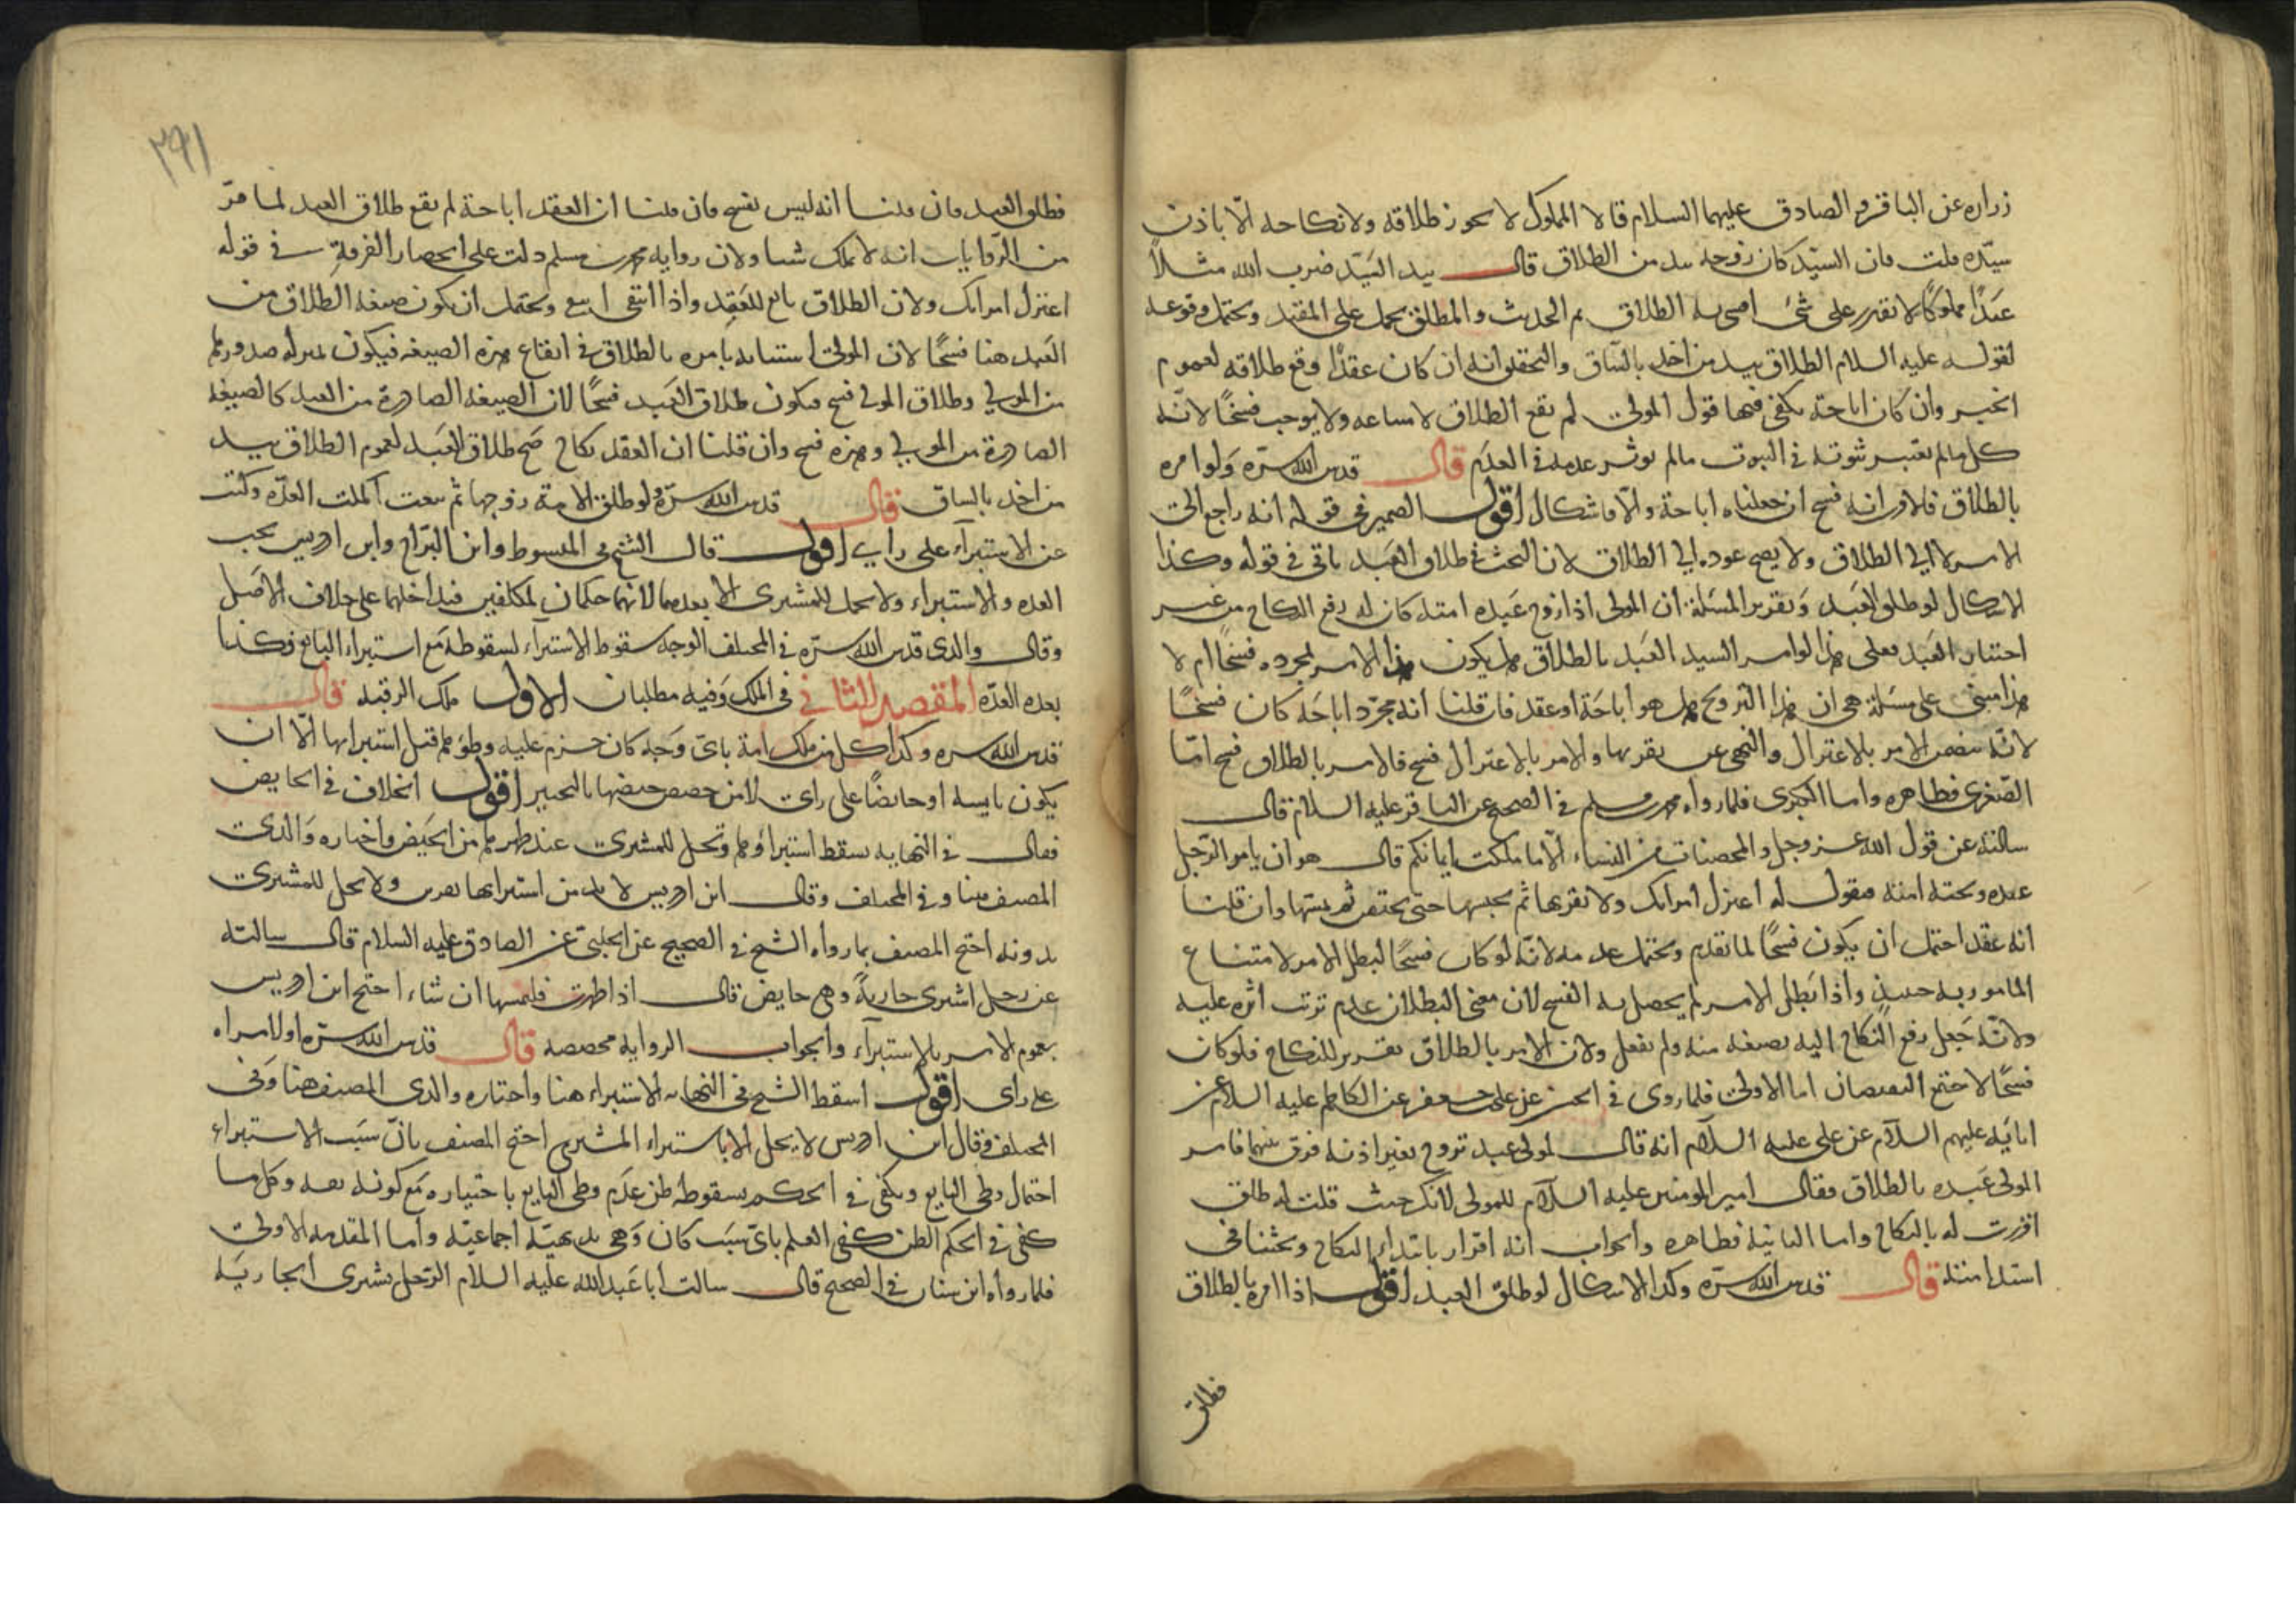 زرارة عن الباقر والصادق عليهما السلام قالا المملوك لا يجوز طلاقه ولا نكاحه الّا باذن
سيّده قلت فان السيّد كان زوجه بيد من الطلاق قال بيد السيّد ضرب الله مثلاً
عبدًا مملوكًا لا يقدر على شئ افشئ الطلاق تم الحديث والمطلق يحمل على المقيد ويحتمل وقوعه
لقوله عليه السلام الطلاق بيد من اخذ بالسّاق والتحقيق انه ان كان عقدًا وقع طلاقه لعموم
الخبر وان كان اباحة يكفى فيها قول المولى لم يقع الطلاق لامتناعه ولا يوجب فسخًا لانّه
كل مالم يعتبر ثبوته فى الثبوت مالم يوثر عدمه فى العدم قال قدس الله سرّه ولو امره
بالطلاق فالاقرب انه فسخ ان جعلناه اباحة والّا فاشكال اقول الضمير فى قوله انه راجع الى
الامر لا الى الطلاق ولا يصح عوده الى الطلاق لان البحث فى طلاق العبد ياتى فى قوله وكذا
الاشكال لو طلق العبد وتقرير المسئلة ان المولى اذا زوج عبده امته كان له رفع النكاح من غير
اختيار العبد فعلى هذا لو امر السيد العبد بالطلاق هل يكون هذا الامر لمجرده فسخًا ام لا
هذا مبنى على مسئلة هى ان هذا التزويج هل هو اباحة او عقد فان قلنا انه مجرّد اباحة كان فسخًا
لانّه يتضمن الامر بالاعتزال والنهى عن تقربها والامر بالاعتزال فسخ فالامر بالطلاق فسخ امّا
الصّغرى فظاهرة واما الكبرى فلما رواه محمد بن مسلم فى الصحيح عن الباقر عليه السلام قال
سالته عن قول الله عز وجل والمحصنات من النساء الّا ما ملكت ايمانكم قال هو ان يامر الرّجل
عبده وتحته امته فيقول له اعتزل امراتك ولا تقربها ثم يحبسها حتى تحيض ثم يمسّها وان قلنا
انه عقد احتمل ان يكون فسخًا لما تقدم ويحتمل عدمه لانّه لو كان فسخًا لبطل الامر لامتناع
المامور به حينئذ واذا بطل الامر لم يحصل به الفسخ لان معنى البطلان عدم ترتب اثره عليه
ولانّه جعل رفع النكاح اليه بصيغة منه ولم يفعل ولان الامر بالطلاق تقرير للنكاح فلو كان
فسخًا لاجتمع النقيضان اما الاولى فلما روى فى الخبر عن على بن جعفر عن الكاظم عليه السلام عن
ابائه عليهم السلام عن على عليه السلام انه قال لمولى عبد تزوج بغير اذنه فرق بينهما فامر
المولى عبده بالطلاق فقال امير المومنين عليه السلام للمولى لانك حيث قلت له طلق
اقررت له بالنكاح واما الثانية فظاهرة والجواب انه اقرار بابتداء النكاح وبحثنا فى
استدامته قال قدس الله سرّه وكذا الاشكال لو طلق العبد اقول اذا امره بالطلاق
فطلق
٢٩١
فطلق العبد فان قلنا انه ليس بفسخ فان قلنا ان العقد اباحة لم يقع طلاق العبد لما مرّ
من الرّوايات انه لا يملك شيئا ولان رواية محمد بن مسلم دلت على انحصار الفرقة فى قوله
اعتزل امراتك ولان الطلاق تابع للعقد واذا انتفى انتفى ويحتمل ان يكون صيغة الطلاق من
العبد هنا فسخًا لان المولى استنابه بامره بالطلاق فى ايقاع هذه الصيغة فيكون بمنزلة صدورها
من المولى وطلاق المولى فسخ فيكون طلاق العبد فسخًا لان الصيغة الصادرة من العبد كالصيغة
الصادرة من المولى وهذه فسخ وان قلنا ان العقد نكاح صح طلاق العبد لعموم الطلاق بيد
من اخذ بالساق قال قدس الله سرّه ولو طلق الامة زوجها ثم بيعت اكملت العدّة وكفت
عن الاستبراء على راى اقول قال الشيخ فى المبسوط وابن البرّاج وابن ادريس يجب
العدة والاستبراء ولا يحل للمشترى الا بعدهما لانهما حكمان لمكلفين فتداخلهما على خلاف الاصل
وقال والدى قدس الله سرّه فى المختلف الوجه سقوط الاستبراء لسقوطه مع استبراء البايع فكذا
بعده العدّة المقصد الثانى فى الملك وفيه مطلبان الاول ملك الرقبة قال
قدس الله سره وكذا كل من ملك امة باىّ وجه كان حرم عليه وطؤها قبل استبرائها الّا ان
يكون يايسة او حائضًا على راى لامن حصص حيضها بالتحيير اقول الخلاف فى الحايض
فقال فى النهاية يسقط استبراؤها وتحل للمشترى عند طهرها من الحيض واختاره والدى
المصنف هنا وفى المختلف وقال ابن ادريس لا بد من استبرائها بقرء ولا تحل للمشترى
بدونه احتج المصنف بما رواه الشيخ فى الصحيح عن الحلبى عن الصادق عليه السلام قال سالته
عن رجل اشترى جاريةً وهى حايض قال اذا طهرت فليمسها ان شاء احتج ابن ادريس
بعموم الامر بالاستبراء والجواب الرواية مخصصة قال قدس الله سرّه او لامراة
على راى اقول اسقط الشيخ فى النهاية الاستبراء هنا واختاره والدى المصنف هنا وفى
المختلف وقال ابن ادريس لا يحل الا باستبراء المشترى احتج المصنف بانّ سبب الاستبراء
احتمال وطى البايع ويكفى فى الحكم بسقوطه ظن عدم وطى البايع باختياره مع كونه ثقة وكل ما
كفى فى الحكم الظن كفى العلم باىّ سبب كان وهى بديهيّة اجماعيّة واما المقدمة الاولى
فلما رواه ابن سنان فى الصحيح قال سالت ابا عبد الله عليه السلام الرّجل يشترى الجارية